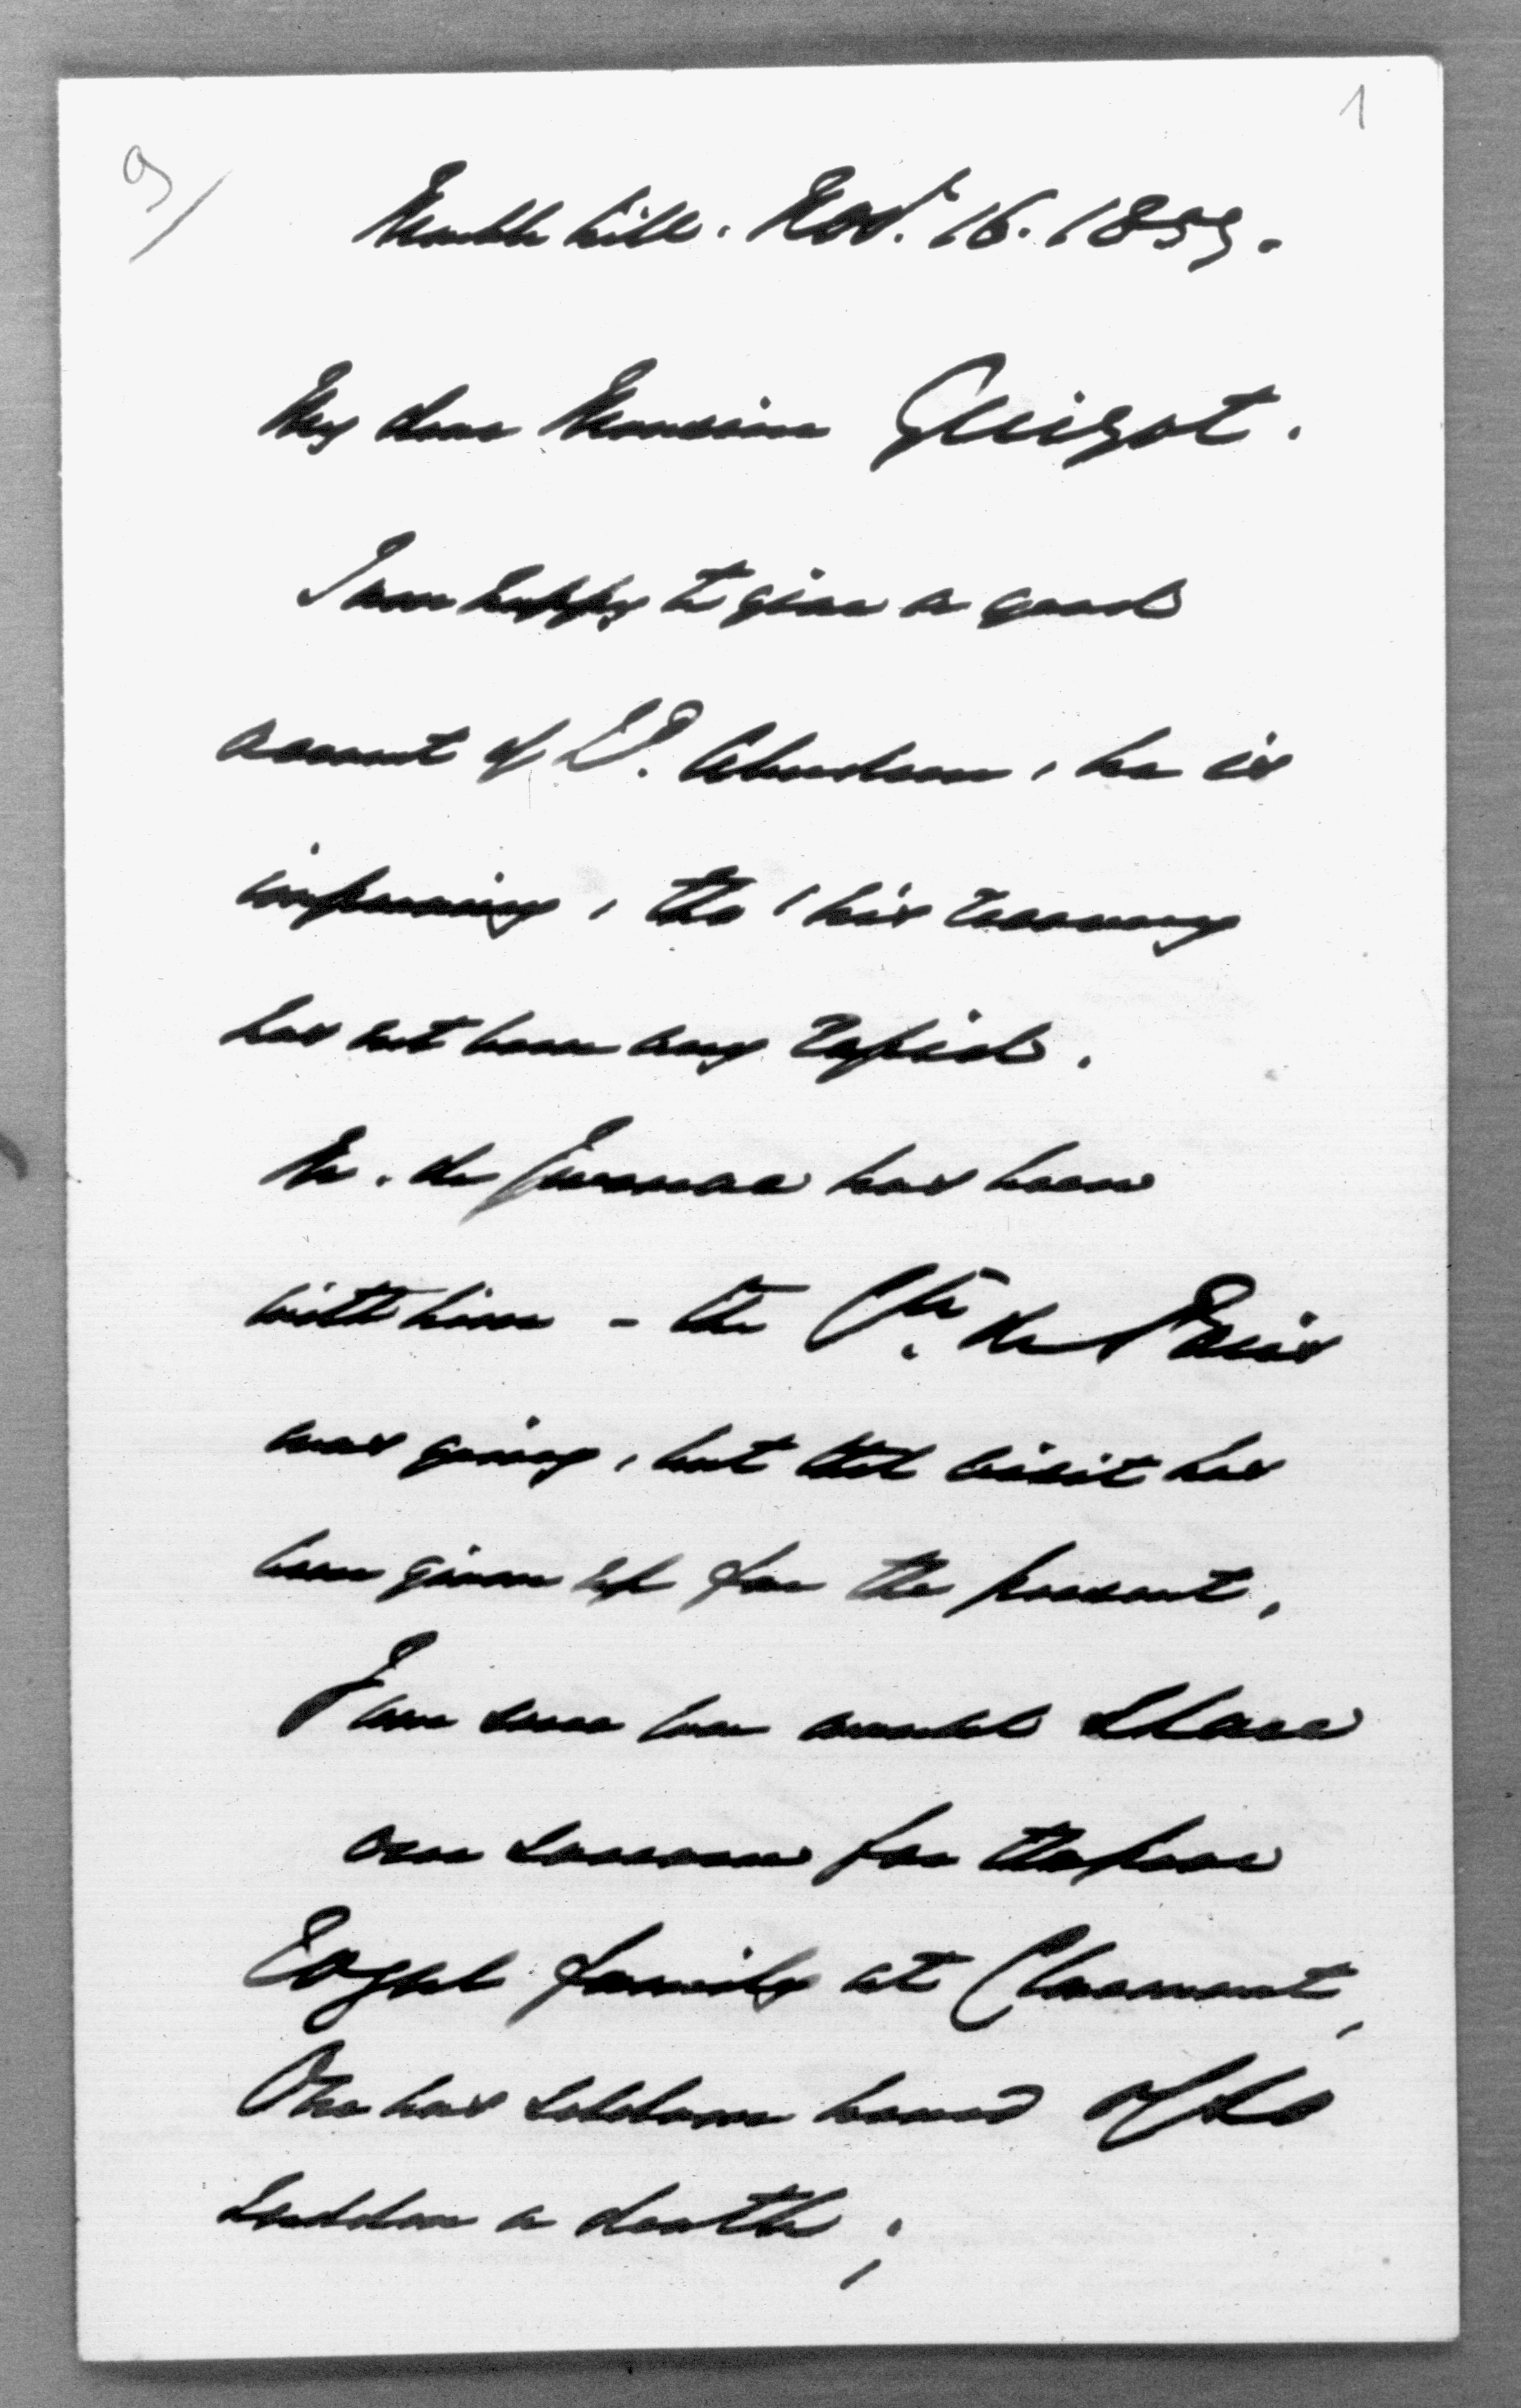 1
9/
Marble hill. Nov.r 16. 1857.
My dear Monsieur Guizot.
I am happy to give a good
account of Ld. Aberdeen, he is
improving, tho' his recovery
has not been very rapid.
M. de Jarnac has been
with him - the Cte. de Paris
was going, but that visit has
been given up for the present.
I am sure you would share
our sorrow for the poor
Royal family at Claremont,
One has seldom heard of so
sudden a death;